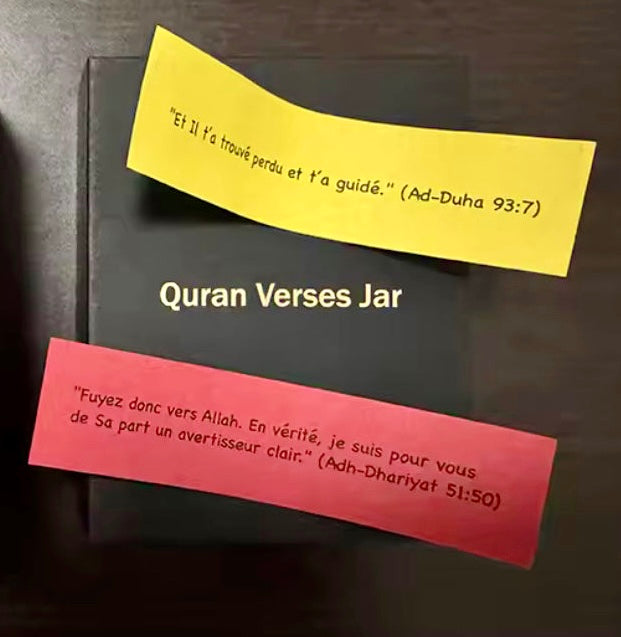 "Et Il t'a trouvé perdu et t'a guidé." (Ad-Duha 93:7)
Quran Verses Jar
"Fuyez donc vers Allah. En vérité, je suis pour vous
de Sa part un avertisseur clair." (Adh-Dhariyat 51:50)